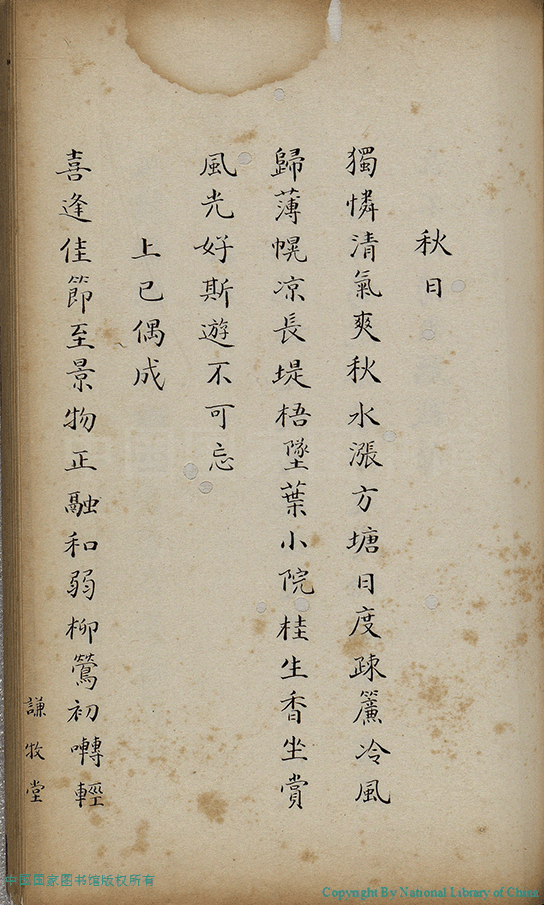 秋日
獨憐清氣爽秋水漲方塘日度疎簾冷風
歸薄幌凉長堤梧墜葉小院桂生香坐賞
風光好斯遊不可忘
上巳偶成
喜逢佳節至景物正融和弱柳鶯初囀輕
謙牧堂
中国国家图书馆版权所有
Copyright By National Library of China